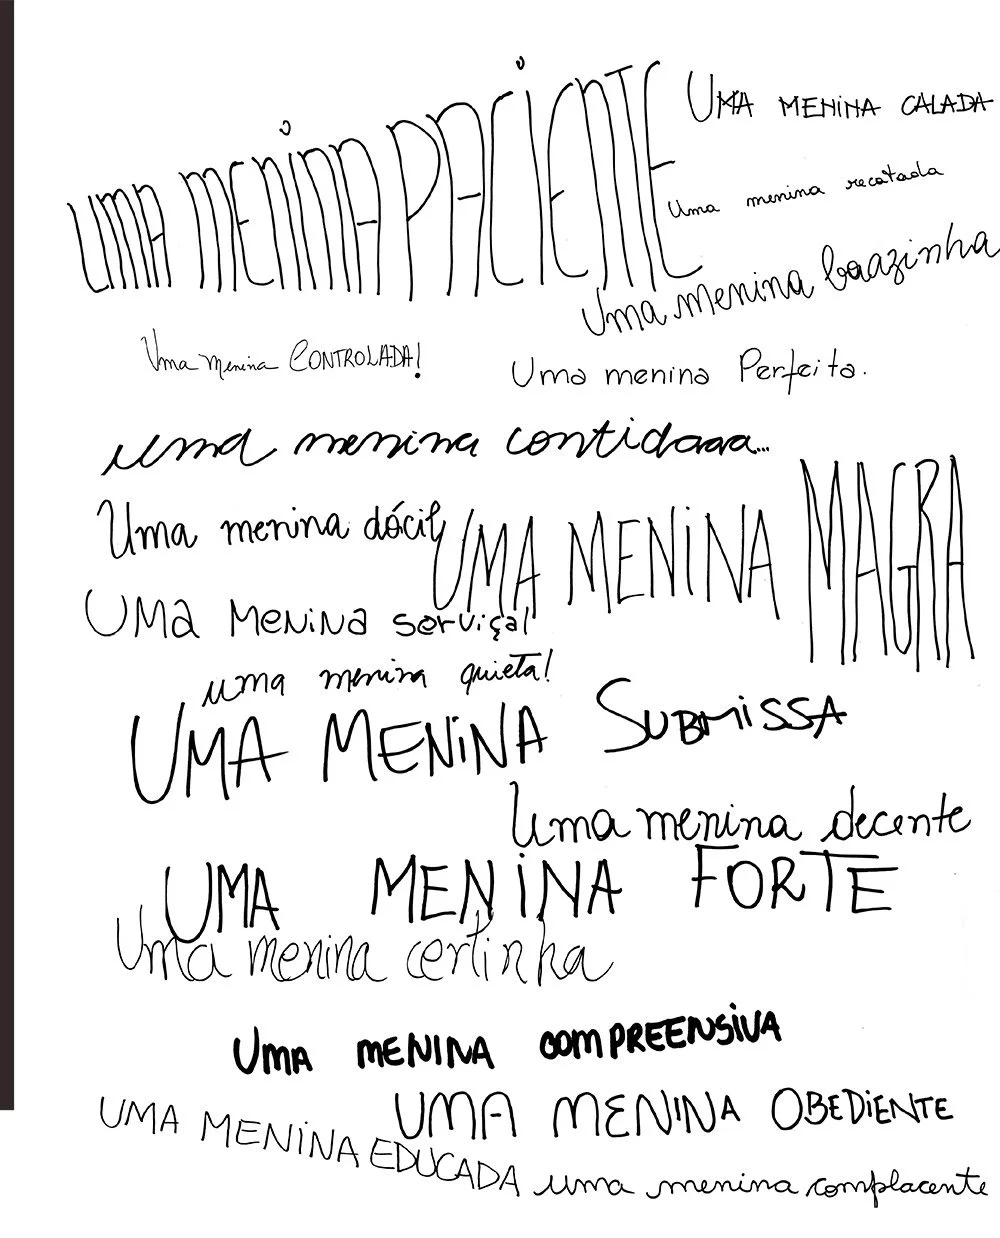 UMA MENINA PACIENTE
UMA MENINA CALADA
Uma menina recatada
Uma menina boazinha
Uma menina CONTROLADA!
Uma menina Perfeita.
uma menina contidaaaa...
Uma menina dócil
UMA MENINA MAGRA
UMa MeNiNa serviçal
uma menina quieta!
UMA MENiNA SUBMiSSA
Uma menina decente
UMA MENiNA FORTE
Uma menina certinha
UMA MENINA COMPREENSiVA
UMA MENiNA OBEDiENTE
UMA MENiNA EDUCADA
uma menina complacente